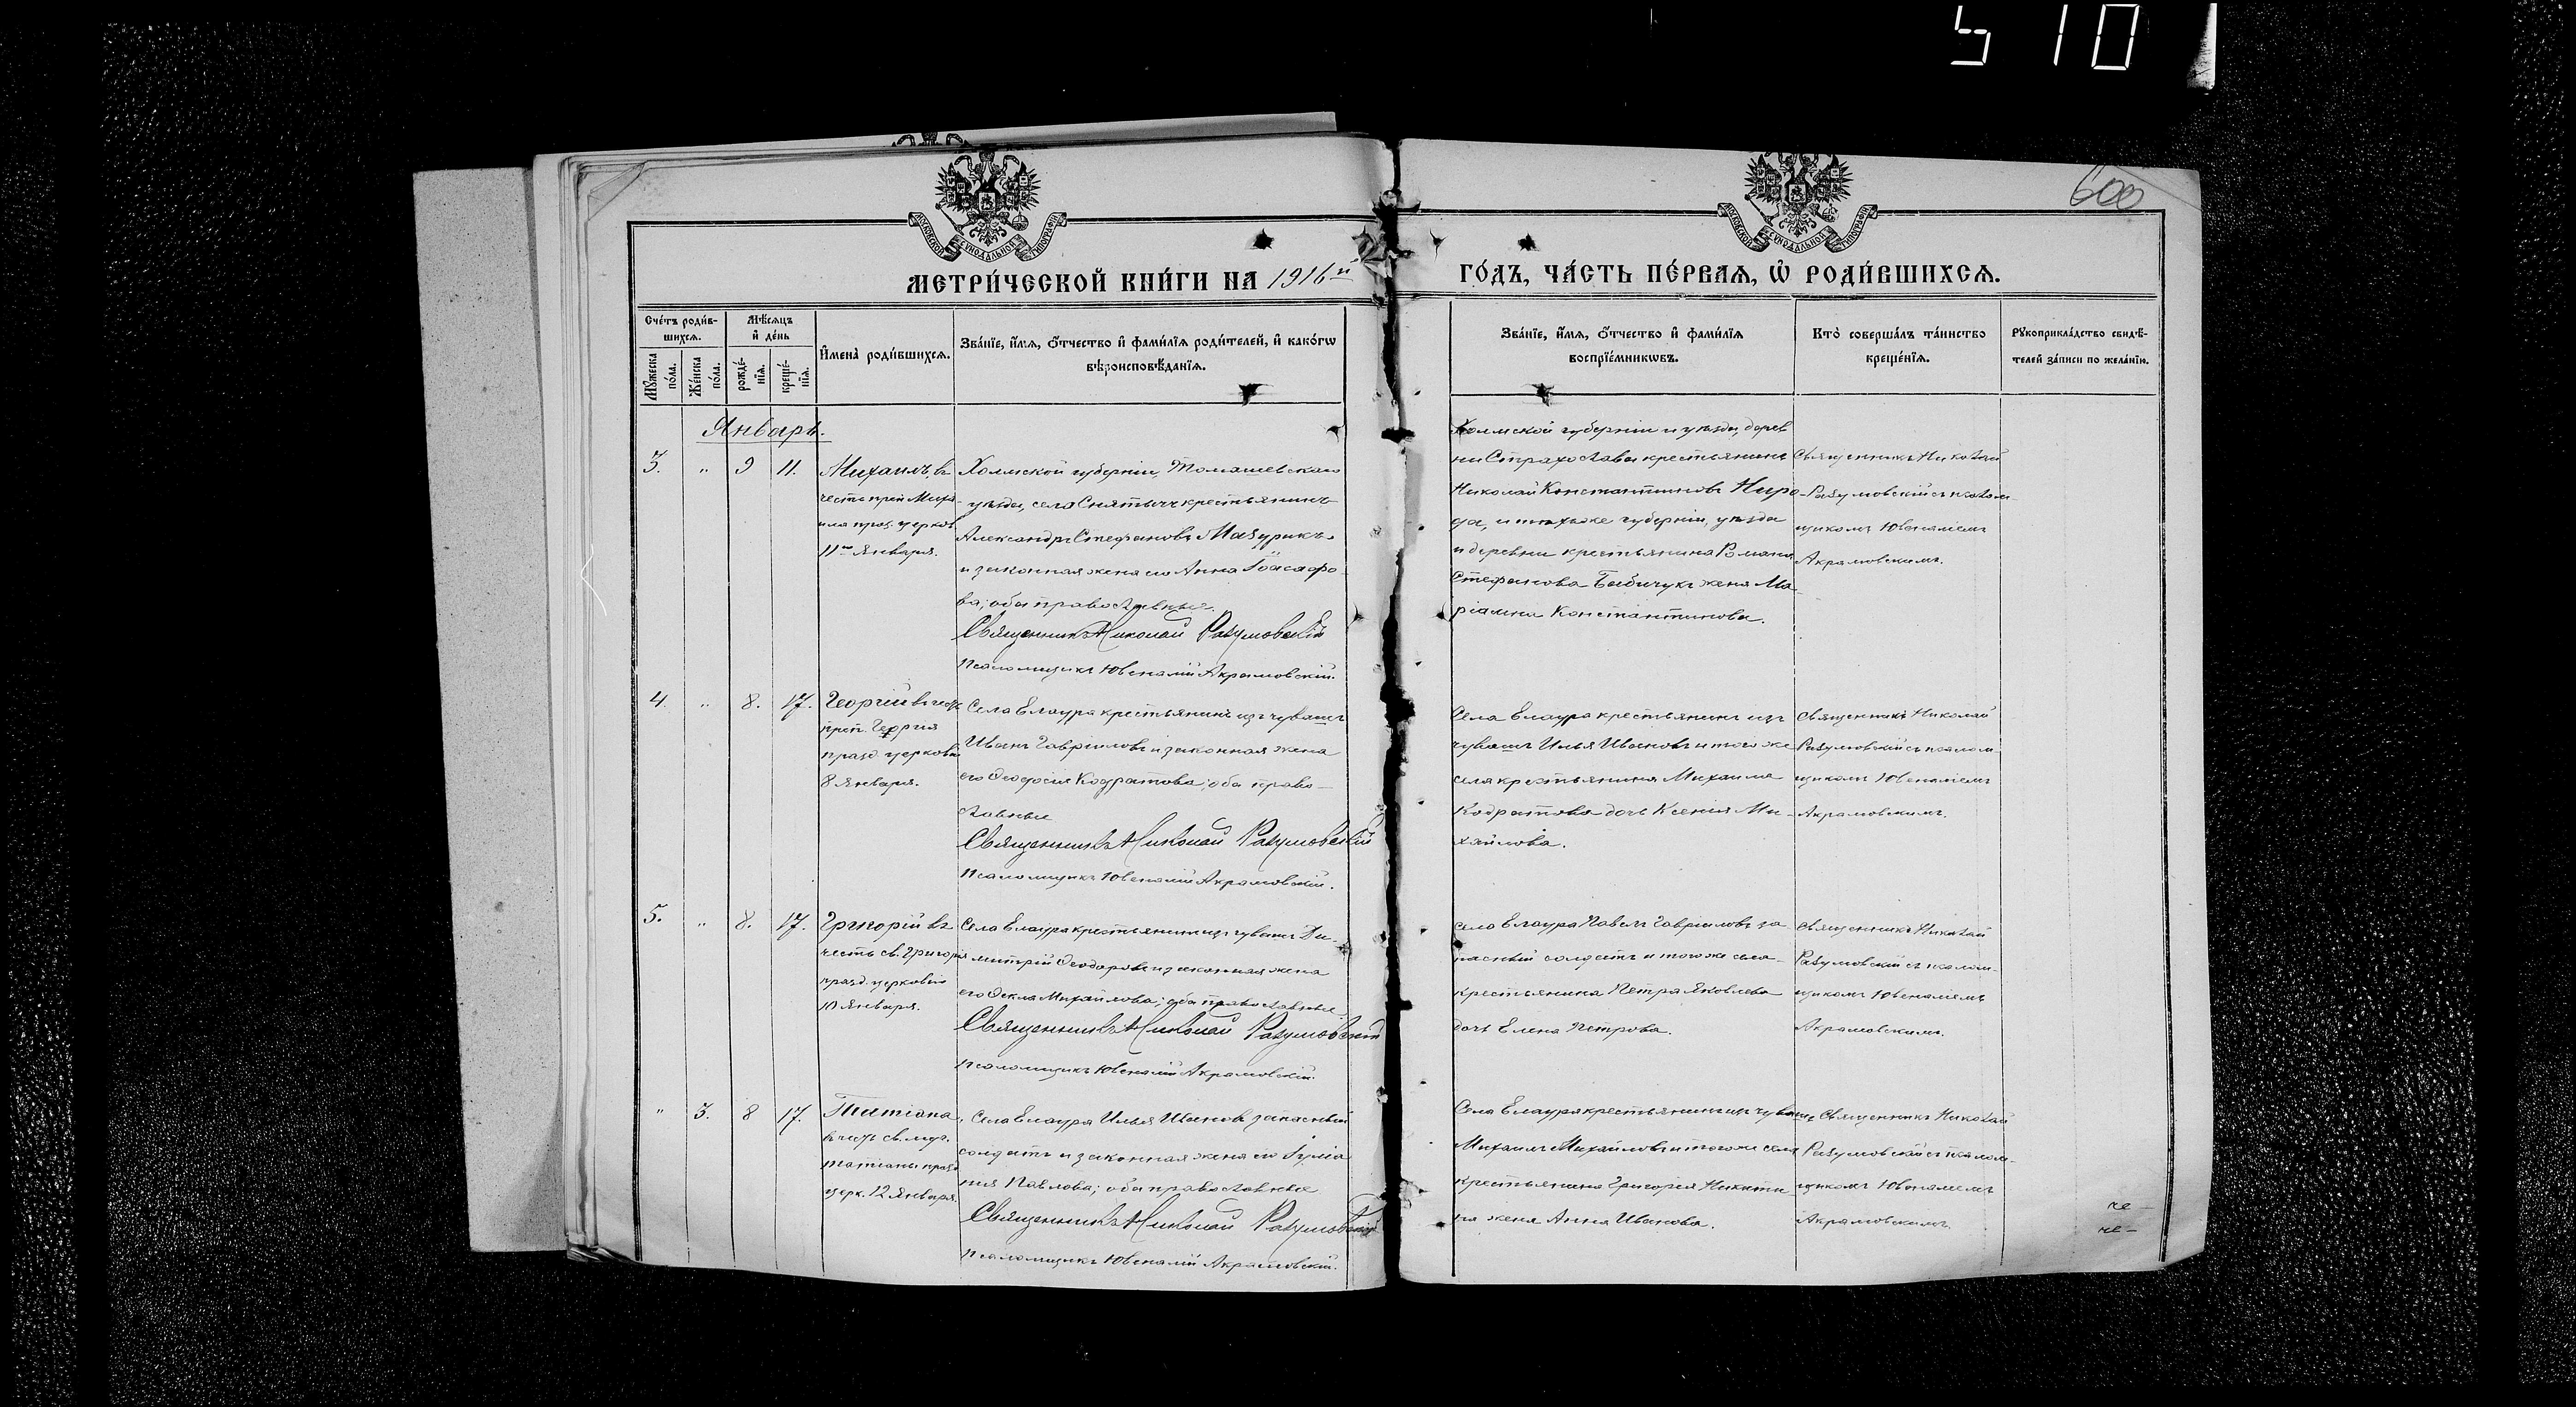 510
600
МОСКОВСКОЙ СѴНОДАЛЬНОЙ ТИПОГРАФІИ
МОСКОВСКОЙ СѴНОДАЛЬНОЙ ТИПОГРАФІИ
МЕТРИ́ЧЕСКОЙ КНИ́ГИ НА 1916й ГО́ДЪ, ЧА́СТЬ ПЕ́РВАѦ, Ѽ РОДИ́ВШИХСѦ.
Сче́тъ роди́в-
шихсѧ.
Мꙋ́жеска
по́ла.
Же́нска
по́ла.
Мѣ́сѧцъ
и҆ де́нь
рожде́-
нїѧ.
креще́-
нїѧ.
И҆мена̀ роди́вшихсѧ.
Зва́нїе, и҆́мѧ, ѻ҆́тчество и҆ фами́лїѧ роди́телей, и҆ како́гѡ
вѣроисповѣ́данїѧ.
Зва́нїе, и҆́мѧ, ѻ҆́тчество и҆ фами́лїѧ
воспрїе́мникѡвъ.
Кто̀ соверша́лъ та́инство
креще́нїѧ.
Рꙋкоприкла́дство свидѣ́-
телей за́писи по жела́нїю.
Январь.
3. " 9 11.
Михаилъ, въ
честь преп. Миха-
ила праз. церков.
11го Января.
Холмской губерніи, Томашевскаго
уѣзда, села Снятычъ крестьянинъ
Александръ Стефановъ Мазурикъ
и законная жена его Анна Іоасафо-
ва; оба православные.
Священникъ Николай Разумовскій
Псаломщикъ Ювеналій Акрамовскій.
Холмской губерніи и уѣзда, дерев
ни Страхослава крестьянинъ
Николай Константиновъ Ниро-
да, и той же губерніи, уѣзда
и деревни крестьянина Романа
Стефанова Бабичукъ жена Ма-
ріамна Константинова.
Священникъ Николай
Разумовскій съ псалом-
щикомъ Ювеналіемъ
Акрамовскимъ.
4. " 8. 17.
Георгій въ честь
преп. Георгія
празд. церковію
8 Января.
Села Елаура крестьянинъ изъ чувашъ
Иванъ Гавріиловъ и законная жена
его Ѳеодосія Кодратова; оба право-
славные
Священникъ Николай Разумовскій
Псаломщикъ Ювеналій Акрамовскій.
Села Елаура крестьянинъ изъ
чувашъ Илья Ивановъ и того же
села крестьянина Михаила
Кодратова дочь Ксенія Ми-
хайлова.
Священникъ Николай
Разумовскій съ псалом-
щикомъ Ювеналіемъ
Акрамовскимъ.
5. " 8. 17.
Григорій въ
честь св. Григорія
празд. церковію
10 Января.
Села Елаура крестьянинъ изъ чувашъ Ди-
митрій Ѳеодоровъ и законная жена
его Ѳекла Михайлова; оба православные.
Священникъ Николай Разумовскій
Псаломщикъ Ювеналій Акрамовскій.
Села Елаура Павелъ Гавріиловъ за-
пасный солдатъ и того же села
крестьянина Петра Яковлева
дочь Елена Петрова.
Священникъ Николай
Разумовскій съ псалом-
щикомъ Ювеналіемъ
Акрамовскимъ.
" 3. 8 17.
Татіана,
въ честь св. муч.
Татіаны празд.
церк. 12 Января.
Села Елаура Илья Ивановъ запасный
солдатъ и законная жена его Іуліа
нія Павлова; оба православные
Священникъ Николай Разумовскій
Псаломщикъ Ювеналій Акрамовскій.
Села Елаура крестьянинъ изъ чувашъ
Михаилъ Михайловъ и того же села
крестьянина Григорія Никити
на жена Анна Иванова.
Священникъ Николай
Разумовскій съ псалом-
щикомъ Ювеналіемъ
Акрамовскимъ.